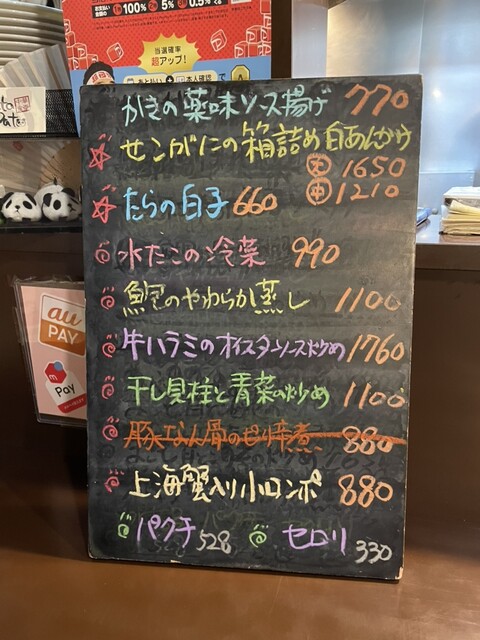 100% 5% 0.5%
当選確率
超アップ!
本人確認
かきの薬味ソース揚げ 770
セコガニの箱詰め 白あんかけ
大 1650
中 1210
たらの白子 660
水たこの冷菜 990
のやわらか蒸し 1100
牛ハラミのオイスターソース炒め 1760
干し貝柱と青菜の炒め 1100
豚なん骨の煮 880
上海蟹入り小ロンポ 880
パクチ 528 セロリ 330
au
PAY
PAY